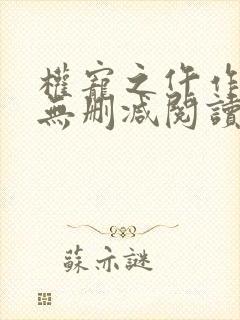 權寵之仵作
無刪減閱讀
蘇亦謎